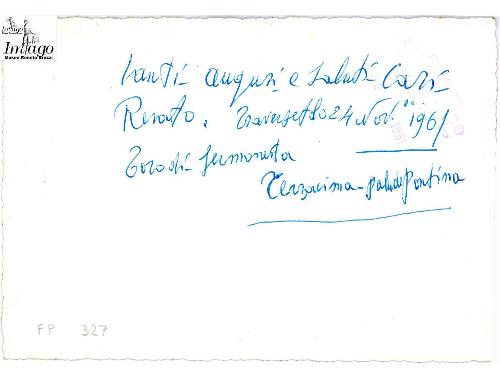 Imago
Museo Renato Brozzi
Tanti auguri e saluti Cari
Renato. Traversetolo 24 Nov.
1961
1961
Toro di Sermoneta
Terracina - palude Pontina
FP 327